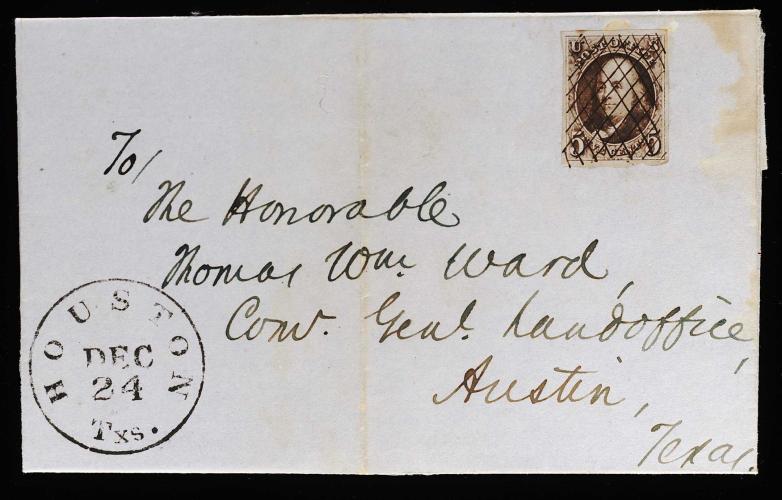 U S
POST OFFICE
5 5
FIVE CENTS
To/
The Honorable
Thomas Wm. Ward,
Com.r Genl. Landoffice,
Austin,
Texas.
HOUSTON
DEC
24
Txs.